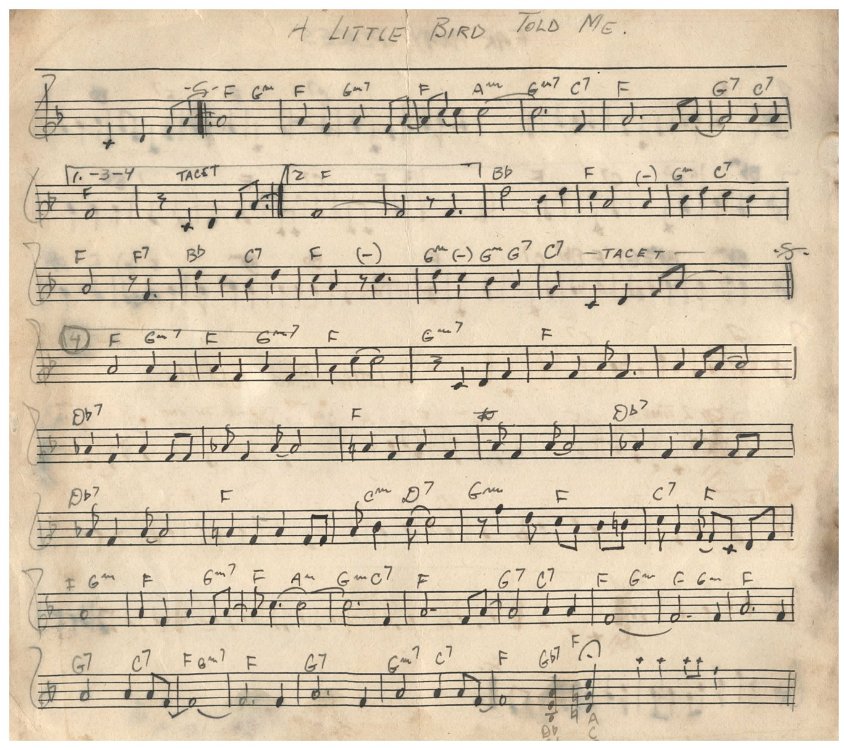 A LITTLE BIRD TOLD ME.
F Gm F Gm7 F Am Gm7 C7 F G7 C7
1.-3-4 F TACET 2 F Bb F (-) Gm C7
F F7 Bb C7 F (-) Gm (-) Gm G7 C7 -TACET-
4 F Gm7 F Gm7 F Gm7 F
Db7 F Db7
Db7 F Cm D7 Gm F C7 F
Gm F Gm7 F Am Gm C7 F G7 C7 F Gm F Gm F
G7 C7 F Gm7 F G7 Gm7 C7 F Gb7 F
Db A
C